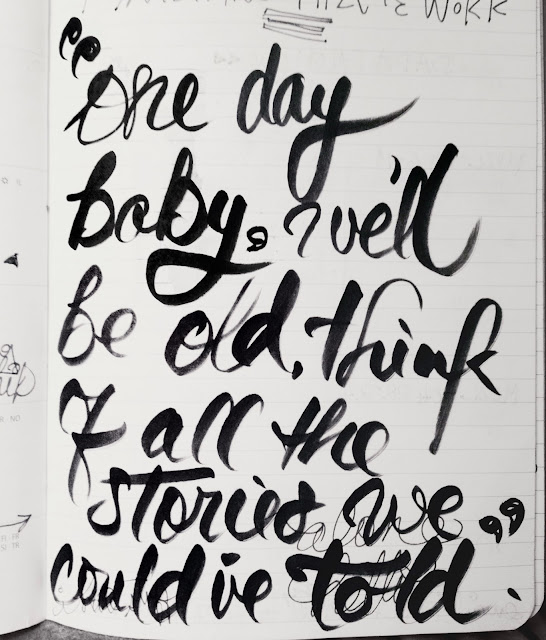 WORK
“One day
baby, we'll
be old, think
of all the
stories we
could've told.”